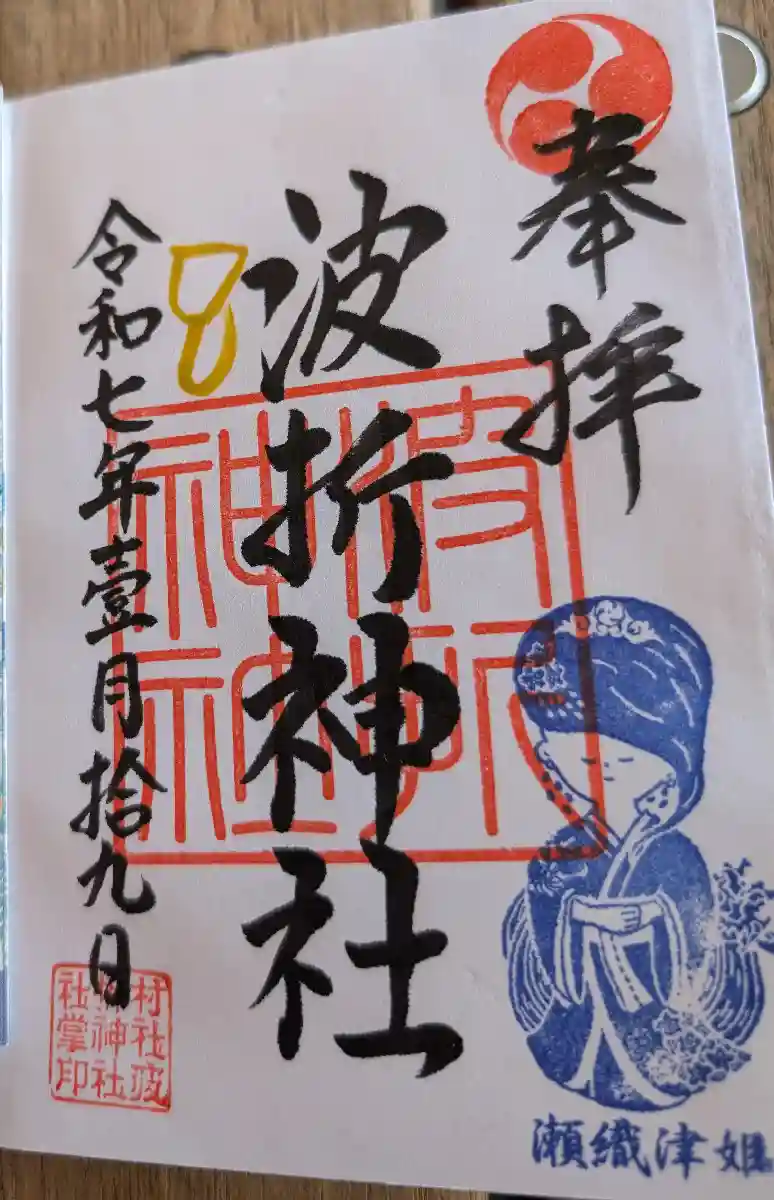 奉拝
波折神社
波折神社
令和七年壹月拾九日
8
村社波折神社社掌印
瀬織津姫